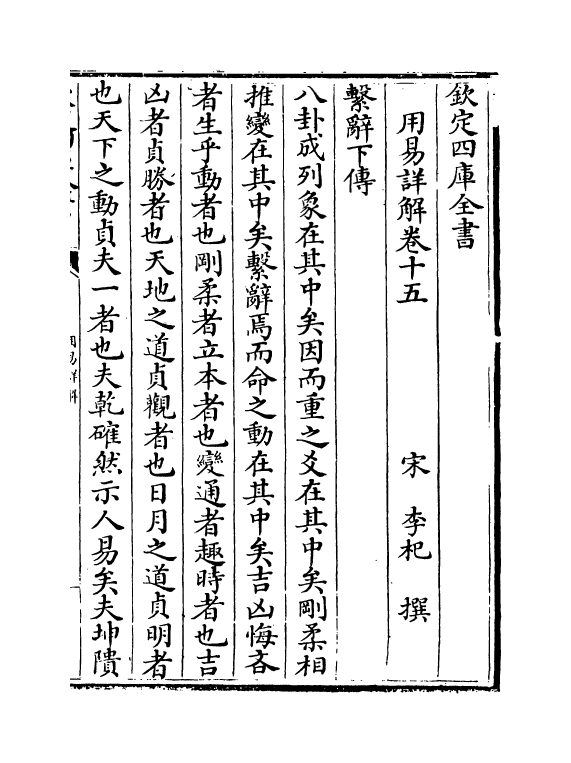 欽定四庫全書
用易詳解卷十五
宋 李杞 撰
繫辭下傳
八卦成列象在其中矣因而重之爻在其中矣剛柔相
推變在其中矣繫辭焉而命之動在其中矣吉凶悔吝
者生乎動者也剛柔者立本者也變通者趣時者也吉
凶者貞勝者也天地之道貞觀者也日月之道貞明者
也天下之動貞夫一者也夫乾確然示人易矣夫坤隤